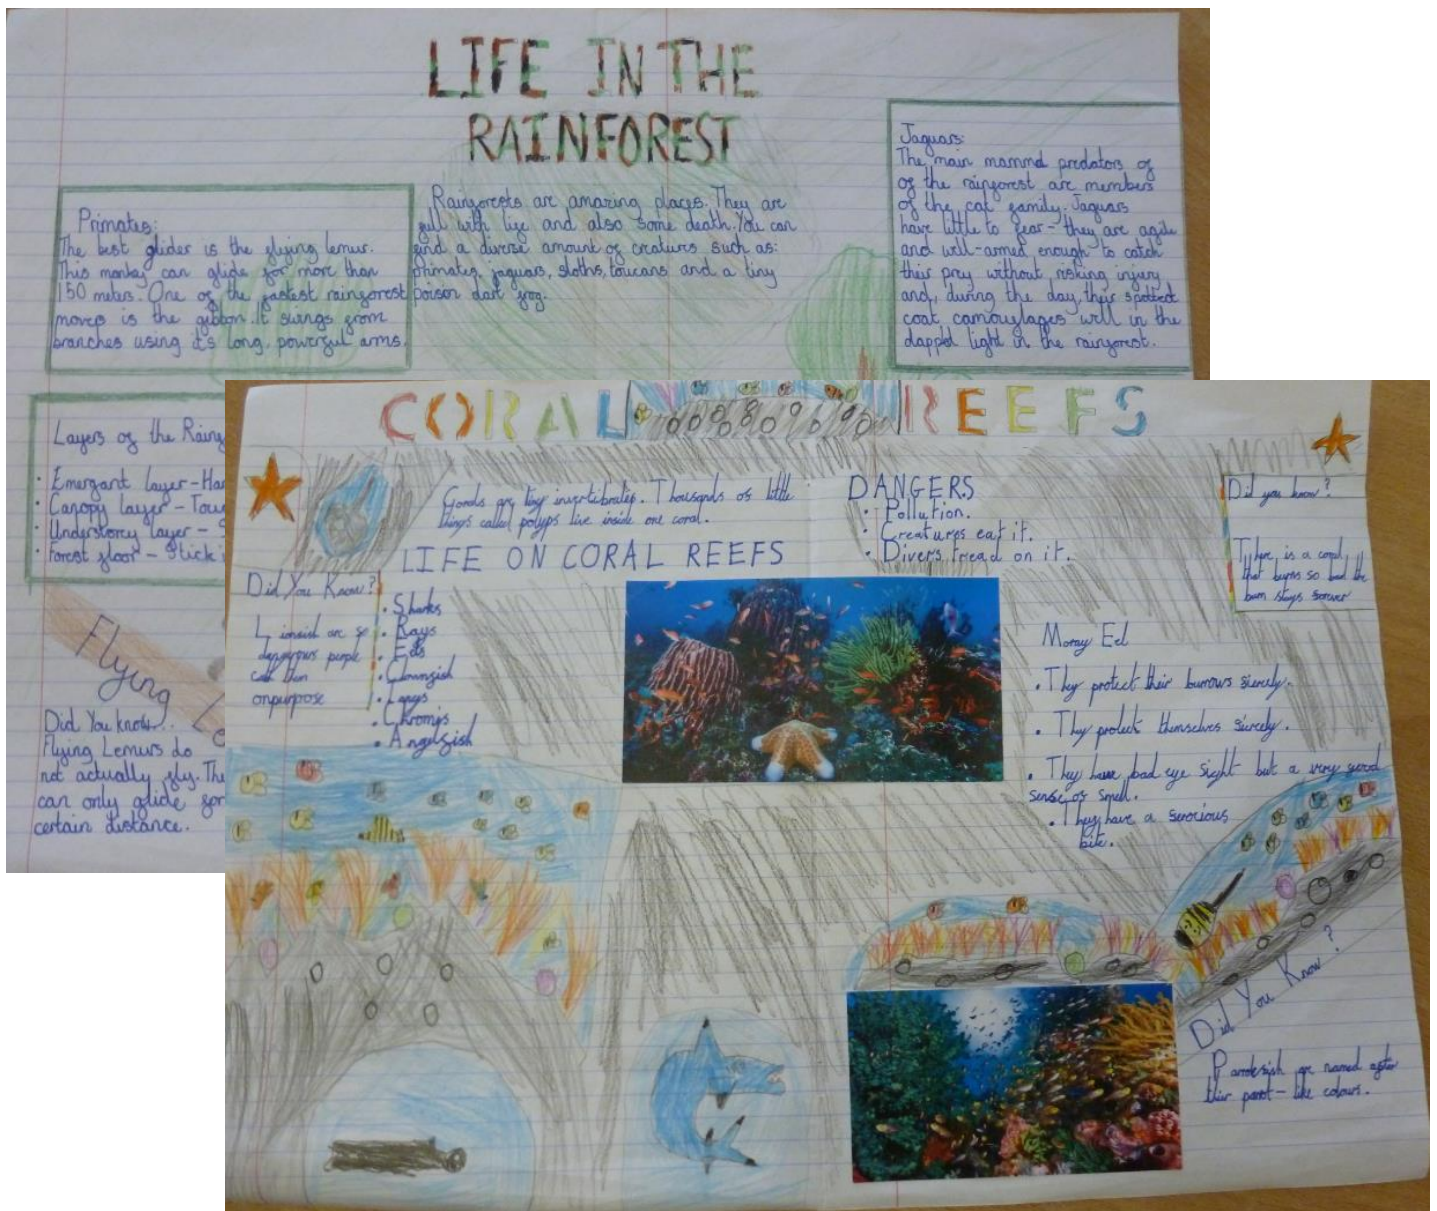 LIFE IN THE
RAINFOREST
Primates:
The best glider is the flying lemur.
This monkey can glide for more than
150 meters. One of the fastest rainforest
movers is the gibbon. It swings from
branches using it's long, powerful arms.
Rainforests are amazing places. They are
full with life and also some death. You can
find a diverse amount of creatures such as:
primates, jaguars, sloths, toucans and a tiny
poison dart frog.
Jaguars:
The main mammal predators of
of the rainforest are members
of the cat family. Jaguars
have little to fear - they are agile
and well-armed enough to catch
their prey without risking injury
and, during the day, their spotted
coat camouflages well in the
dappled light in the rainforest.
Layers of the
• Emergant layer -
• Canopy layer -
• Understorey layer -
• Forest floor - Stick
Flying
Did You know...
Flying Lemurs do
not actually fly.
can only glide for
certain distance.
CORAL REEFS
Corals are tiny invertibrates. Thousands of little
things called polyps live inside one coral.
DANGERS
• Pollution.
• Creatures eat it.
• Divers tread on it.
Did you know?
There is a coral
that burns so bad the
burn stays forever
LIFE ON CORAL REEFS
Did You Know?
Lionfish are so
dangerous people
onpurpose
• Sharks
• Rays
• Eels
• Clownfish
• Tangs
• Chromis
• Angelfish
Moray Eel
• They protect their burrows fiercely.
• They protect themselves fiercely.
• They have bad eye sight but a very good
sense of smell.
• They have a ferocious
bite.
Did You Know?
Parrotfish are named after
their parrot-like colours.